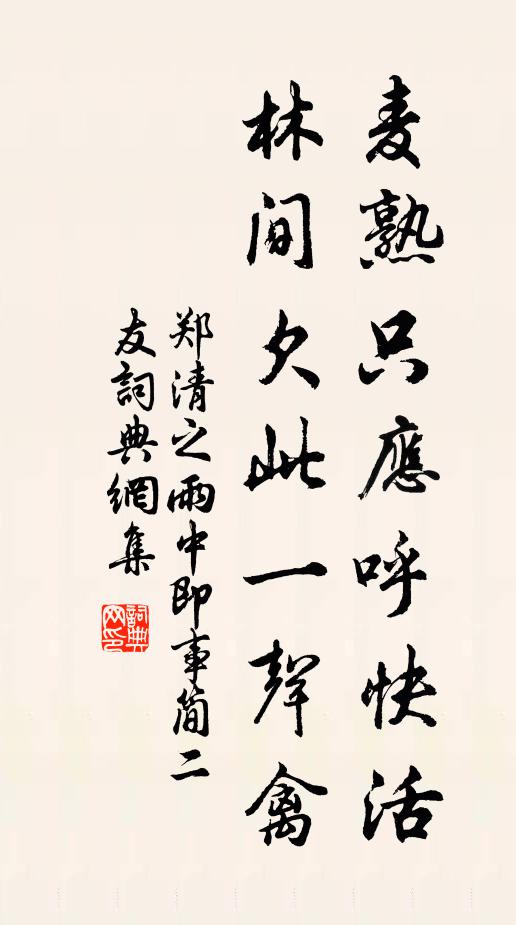 麦熟只應呼快活
林间欠此一聲禽
郑清之雨中即事简二
友詞典網集
詞典网印